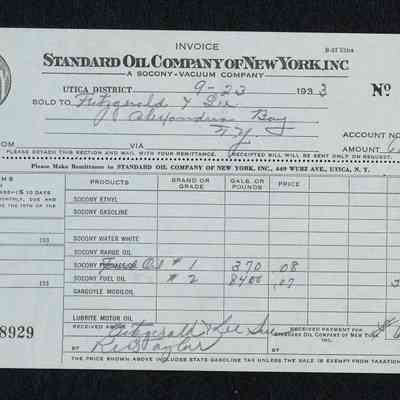 INVOICE B-27 
STANDARD OIL COMPANY OF NEW YORK, INC
A SOCONY-VACUUM COMPANY
UTICA DISTRICT 9-23 1933 No
SOLD TO Fitzgerald & Lee
Alexandria Bay
N.Y. ACCOUNT NO
FROM VIA AMOUNT
PLEASE DETACH THIS SECTION AND MAIL WITH YOUR REMITTANCE. RECEIPTED BILL WILL BE SENT ONLY ON REQUEST.
Please Make Remittance to STANDARD OIL COMPANY OF NEW YORK, INC., 449 WURZ AVE., UTICA, N. Y.
MS PRODUCTS BRAND OR GRADE GALS. OR POUNDS PRICE
S—1% 10 DAYS
MONTHLY, DUE AND
BE THE 10TH OF THE
SOCONY ETHYL
SOCONY GASOLINE
193 SOCONY WATER WHITE
SOCONY RANGE OIL
SOCONY Oil # 1 370 .08
193 SOCONY FUEL OIL # 2 8400 .07
GARGOYLE MOBILOIL
LUBRITE MOTOR OIL
8929 RECEIVED ABOVE Fitzgerald & Lee Inc RECEIVED PAYMENT FOR $
STANDARD OIL COMPANY OF NEW YORK, INC.
BY Taylor BY
THE PRICE SHOWN ABOVE INCLUDES STATE GASOLINE TAX UNLESS THE SALE IS EXEMPT FROM TAXATION